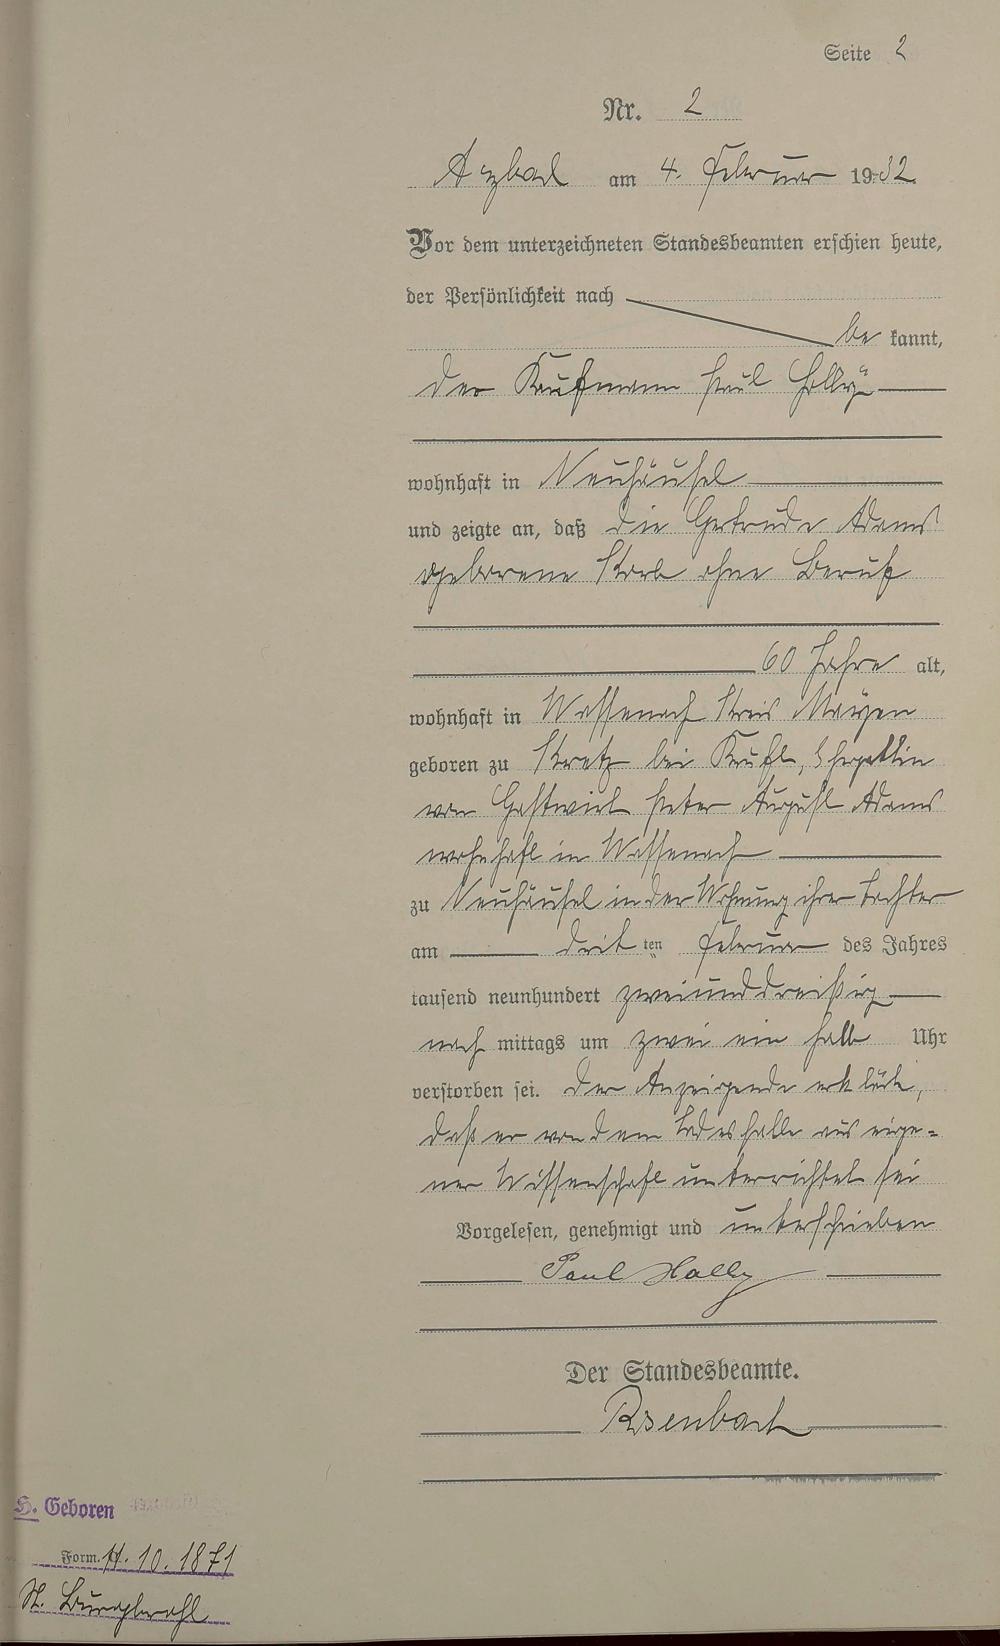 Seite 2
Nr. 2
Arzbach am 4. Februar 1932.
Vor dem unterzeichneten Standesbeamten erschien heute,
der Persönlichkeit nach
be kannt,
der Kaufmann Paul Holly
wohnhaft in Neuhäusel
und zeigte an, daß die Gertrude Adams
geborene Korb ohne Beruf
60 Jahre alt,
wohnhaft in Wassenach Kreis Mayen
geboren zu Kretz bei Kruft, Ehegattin
von Gastwirt Peter August Adams
wohnhaft in Wassenach
zu Neuhäusel in der Wohnung ihrer Tochter
am drit ten Februar des Jahres
tausend neunhundert zweiunddreißig
nach mittags um zwei ein halb Uhr
verstorben sei. Der Anzeigende erklärte,
daß er von dem Todesfalle aus eige=
ner Wissenschaft unterrichtet sei
Vorgelesen, genehmigt und unterschrieben
Paul Holly
Der Standesbeamte.
H. Geboren
Form. 11. 10. 1871
St. Burgbrohl